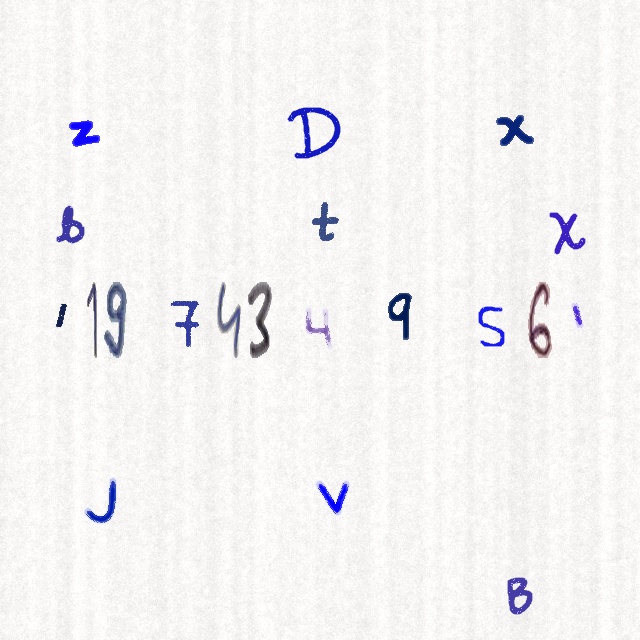 z D x
b t χ
' 19 7 43 4 9 S 6 '
J v
B